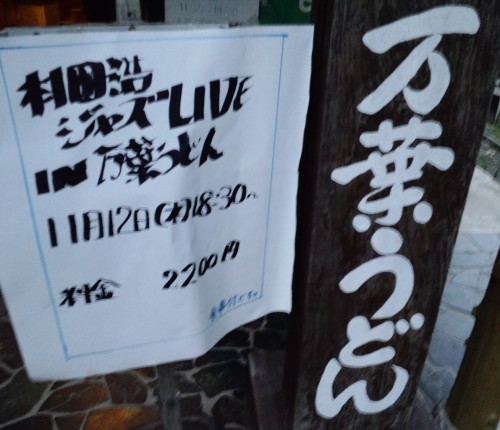 村田浩
ジャズLIVE
IN 万葉うどん
11月12日(木)18:30〜
料金 2200円
万葉うどん